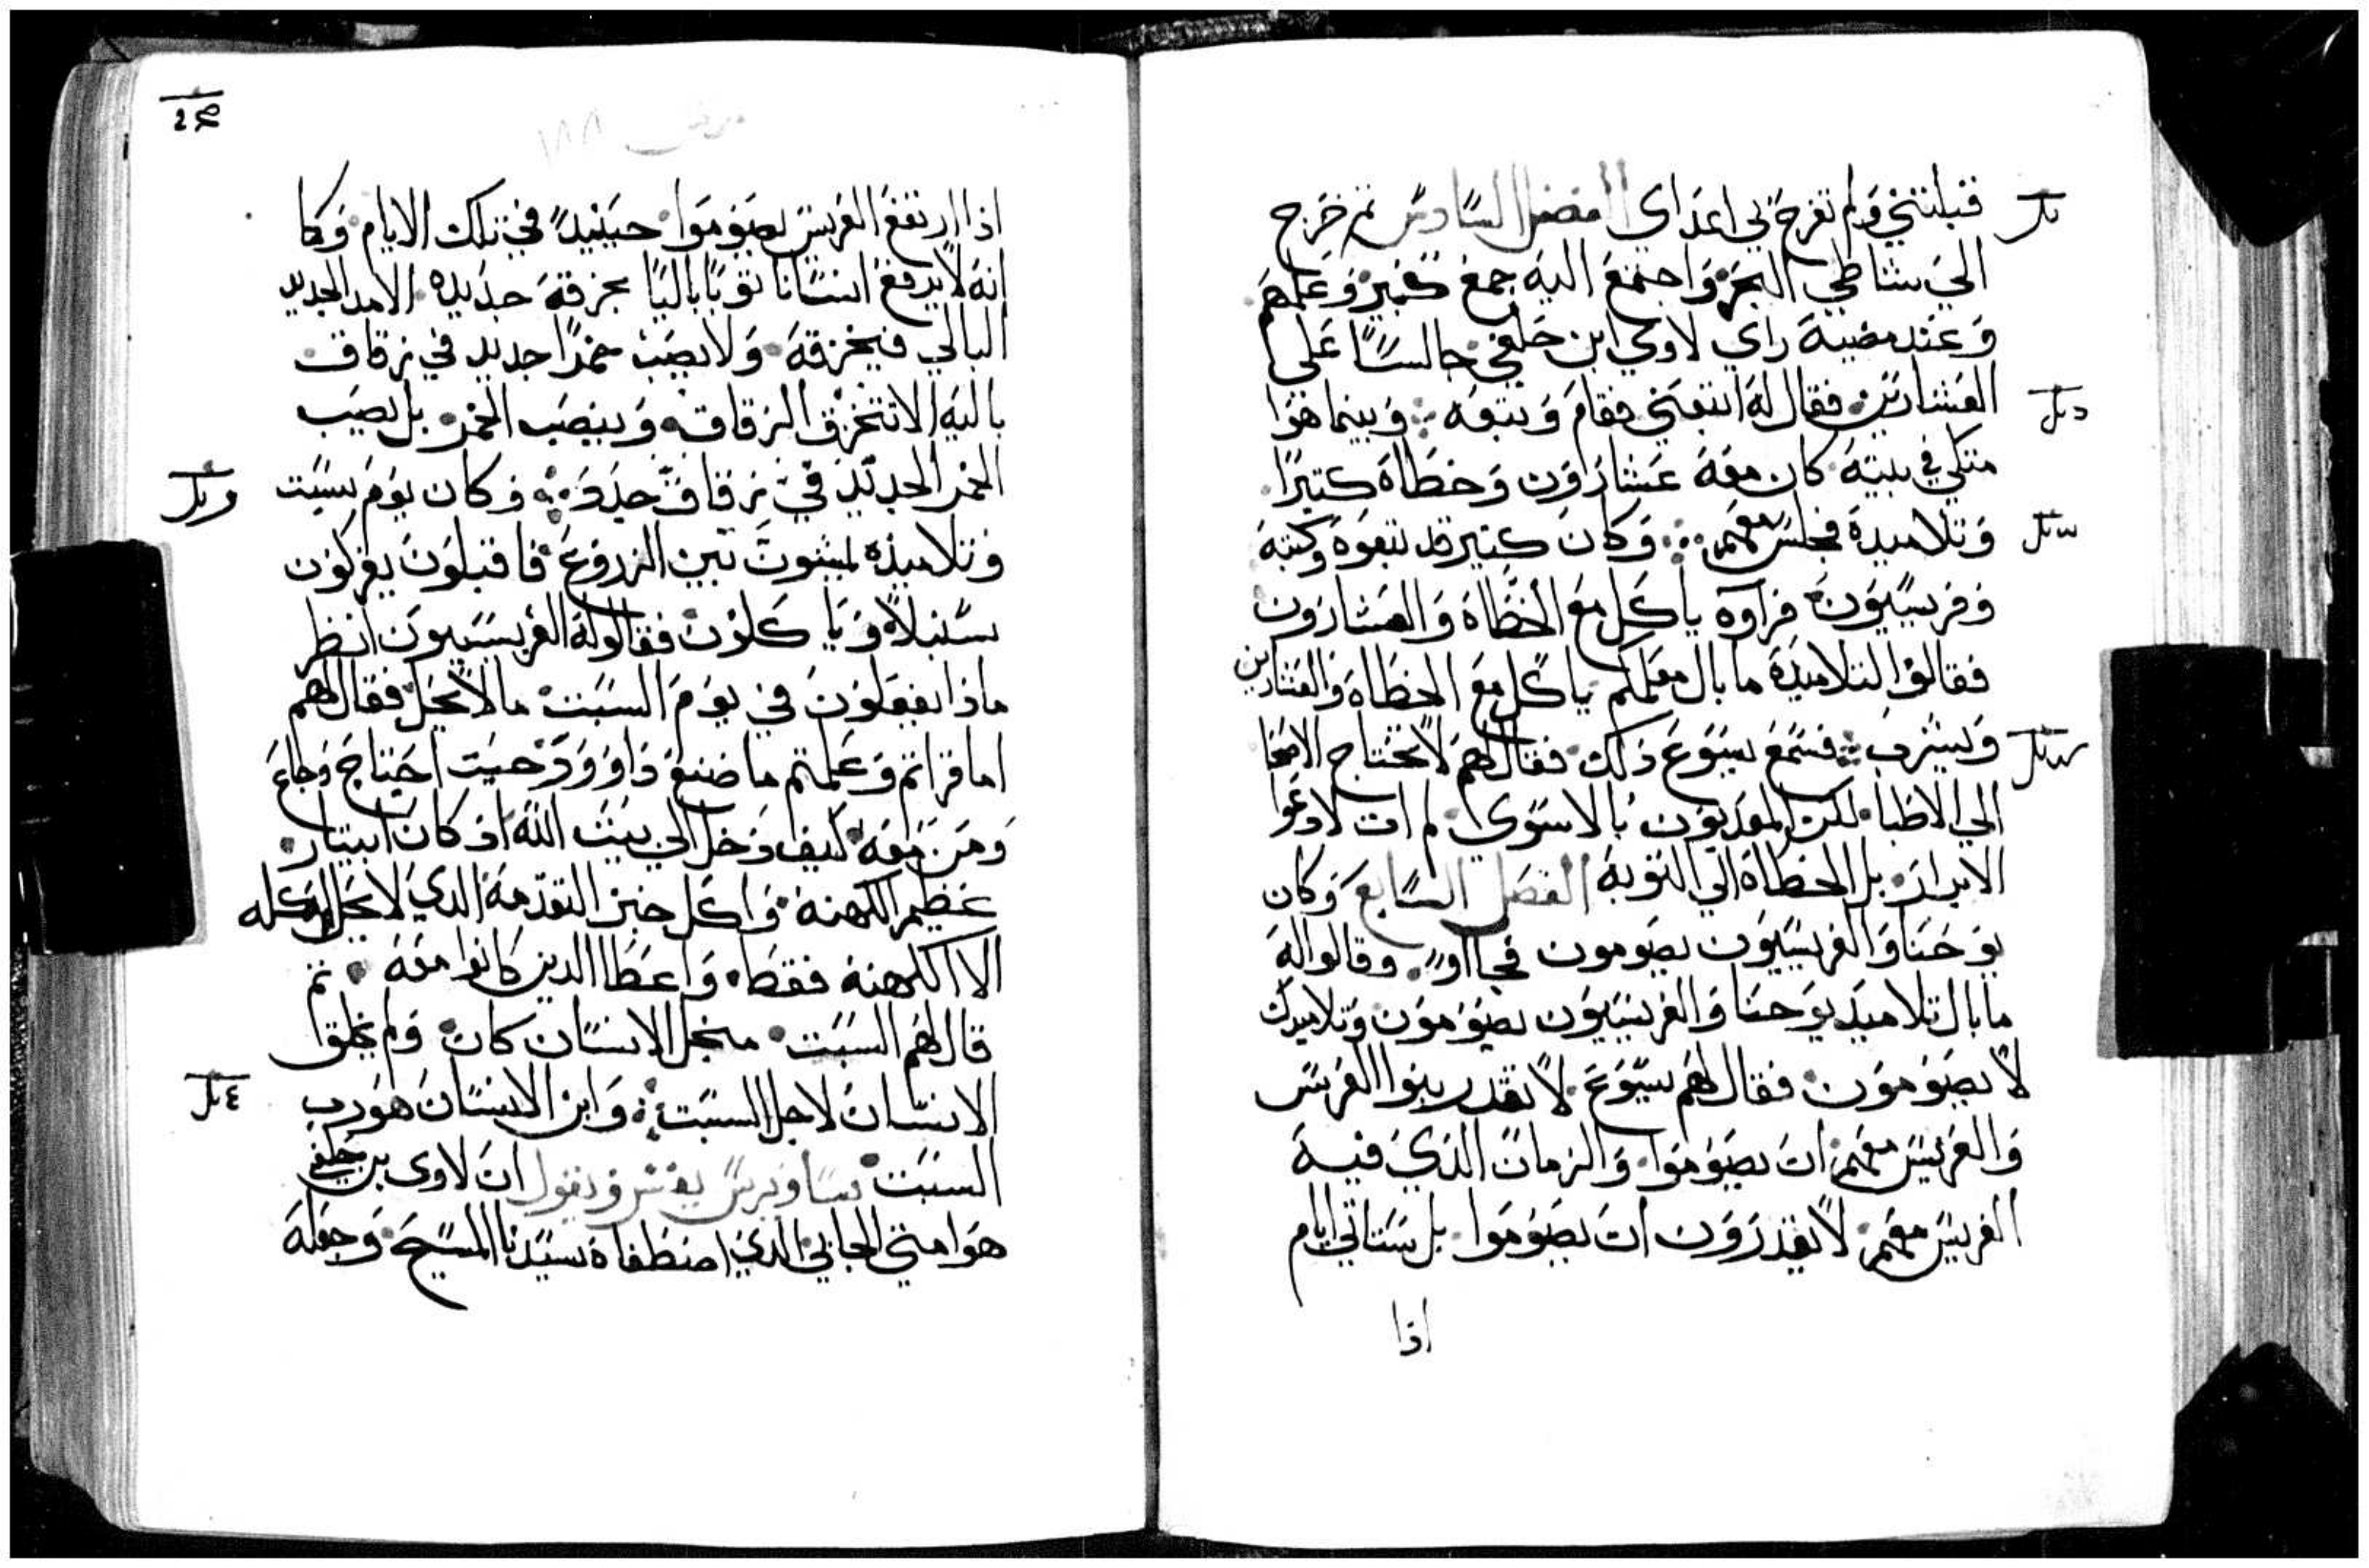 قبلتني ولم تفرح بي اعداي الفصل السادس ثم خرج
الي شاطي البحر واجتمع اليه جمع كبير وعلمهم
وعند مضيه راي لاوي ابن حلفي جالسًا علي
العشارين فقال له اتبعني فقام وتبعه وبينما هوا
متكي في بيته كان معه عشارون وخطاه كتيرًا
وتلاميده فجلس معهم وكان كتير قد تبعوه وكتبه
وفريسيون فراوه ياكل مع الخطاه والعشارون
فقالوا لتلاميده ما بال معلمكم ياكل مع الخطاه والعشارين
ويشرب فسمع يسوع ذلك فقال لهم لا تحتاج الاصحا
الي الاطبا لكن المعذبون بالاسوي لم ات لادعوا
الابرار بل الخطاه الي التوبه الفصل السابع وكان
يوحنا والفريسيون يصومون فجااوا وقالوا له
ما بال تلاميد يوحنا والفريسيون يصومون وتلاميدك
لا يصومون فقال لهم يسوع لا تقدر بنوا العريس
والعريس معهم ان يصوموا والزمان الذي فيه
العريس معهم لا يقدرون ان يصوموا بل ستاتي ايام
اذا
مرقس ١٨٨
اذا ارتفع العريس يصوموا حينيدً في تلك الايام وكا
انه لا يرقع انسانا توبًا باليًا بخرقه جديده الا مد الجديد
البالي فيخرقه ولا يصب خمرًا جديد في زقاق
باليه الا تتخرق الزقاق وينصب الخمر بل يصب
الخمر الجديد في زقاق جدد وكان يوم سبت
وتلاميذه يمشون بين الزروع فاقبلون يفركون
سنبلاً وياكلون فقالوا له الفريسيون انظر
ماذا يفعلون في يوم السبت ما لا يحل فقال لهم
اما قراتم وعلمتم ما صنع داوود حيت احتاج وجاع
ومن معه كيف دخل الي بيت الله اذ كان ابيتار
عظيم الكهنه واكل خبز التقدمه الدي لا يحل اكله
الا الكهنه فقط واعطا الدين كانوا معه ثم
قال لهم السبت منجل الانسان كان ولم يخلق
الانسان لاجل السبت وابن الانسان هو رب
السبت ساويرس يفسر ويقول ان لاوي بن حلفي
هوا متي الجابي الدي اصطفاه سيدنا المسيح وجعله